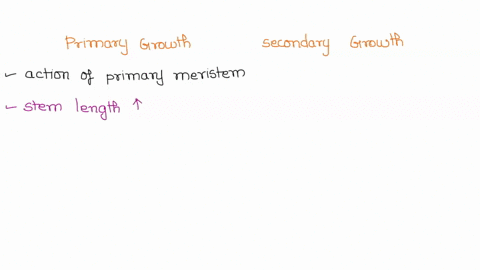 Primary Growth secondary Growth
- action of primary meristem
- stem length ↑